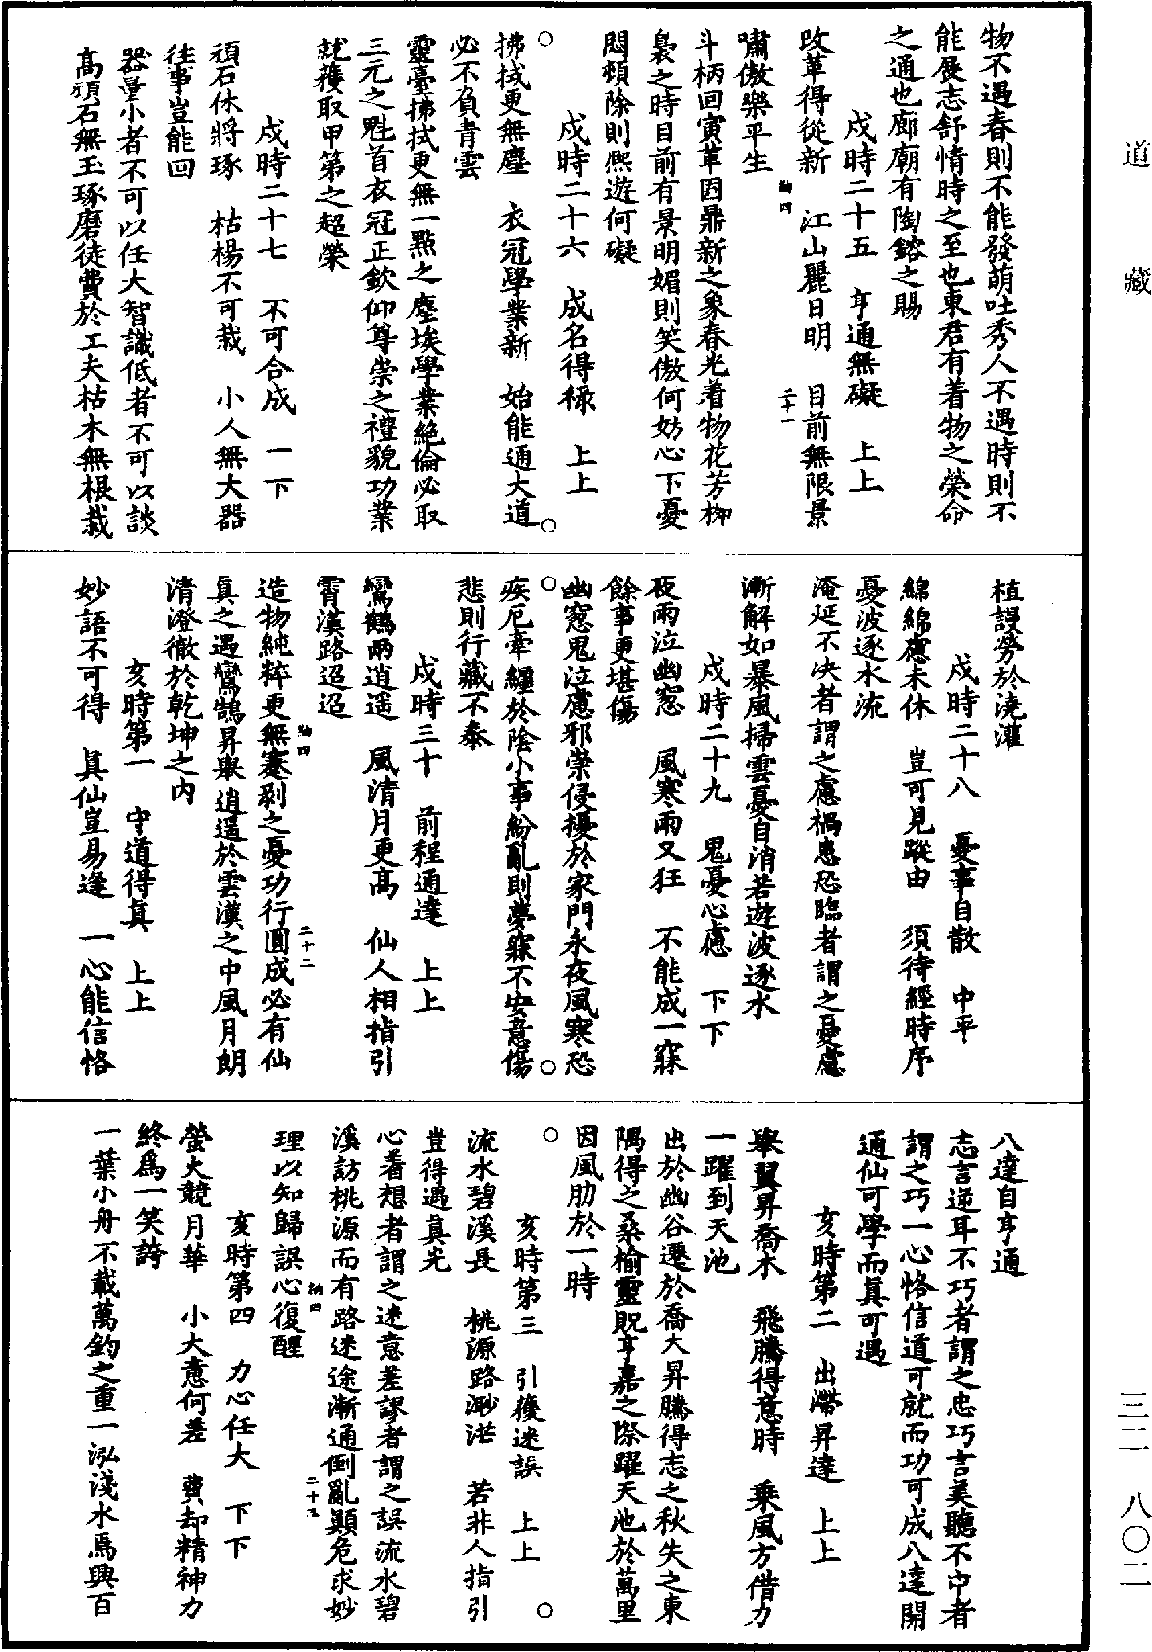 道藏
三二 八〇二
物不遇春則不能發萌吐秀人不遇時則不
能展志舒情時之至也東君有着物之榮命
之通也廊廟有陶鎔之賜
戌時二十五 亨通無礙 上上
改革得從新 江山麗日明 目前無限景
嘯傲樂平生
斗柄回寅革因鼎新之象春光着物花芳柳
裊之時目前有景明媚則笑傲何妨心下憂
悶頓除則熙遊何礙
戌時二十六 成名得祿 上上
拂拭更無塵 衣冠學業新 始能通大道
必不負青雲
靈臺拂拭更無一點之塵埃學業絶倫必取
三元之魁首衣冠正欽仰尊崇之禮貌功業
就獲取甲第之超榮
戌時二十七 不可合成 一下
頑石休將琢 枯楊不可栽 小人無大器
往事豈能回
器量小者不可以任大智識低者不可以談
高頑石無玉琢磨徒費於工夫枯木無根栽
植謾勞於澆灌
戌時二十八 憂事自散 中平
綿綿慮未休 豈可見蹤由 須待經時序
憂波逐水流
淹延不决者謂之慮禍患恐臨者謂之憂慮
漸解如暴風掃雲憂自消若遊波逐水
戌時二十九 鬼憂心慮 下下
夜雨泣幽窓 風寒雨又狂 不能成一寐
餘事更堪傷
幽窓鬼泣慮邪祟侵擾於家門永夜風寒恐
疾厄牽纏於陰小事紛亂則夢寐不安意傷
悲則行藏不泰
戌時三十 前程通達 上上
鸞鶴兩逍遥 風清月更高 仙人相指引
霄漢路迢迢
造物純粹更無蹇剥之憂功行圓成必有仙
真之遇鸞鵠昇舉逍遥於雲漢之中風月朗
清澄徹於乾坤之内
亥時第一 守道得真 上上
妙語不可得 真仙豈易逢 一心能信恪
八達自亨通
志言逆耳不巧者謂之忠巧言美聽不守者
謂之巧一心恪信道可就而功可成八達開
通仙可學而真可遇
亥時第二 出滯昇達 上上
舉翼昇喬木 飛騰得意時 乘風方借力
一躍到天池
出於幽谷遷於喬大昇騰得志之秋失之東
隅得之桑榆靈貺亨嘉之際躍天池於萬里
因風肋於一時
亥時第三 引援迷誤 上上
流水碧溪長 桃源路渺茫 若非人指引
豈得遇真光
心着想者謂之迷意差謬者謂之誤流水碧
溪訪桃源而有路迷途漸通倒亂顛危求妙
理以知歸誤心復醒
亥時第四 力心任大 下下
螢火競月華 小大意何差 費却精神力
終爲一笑誇
一葉小舟不載萬鈞之重一泓淺水焉興百